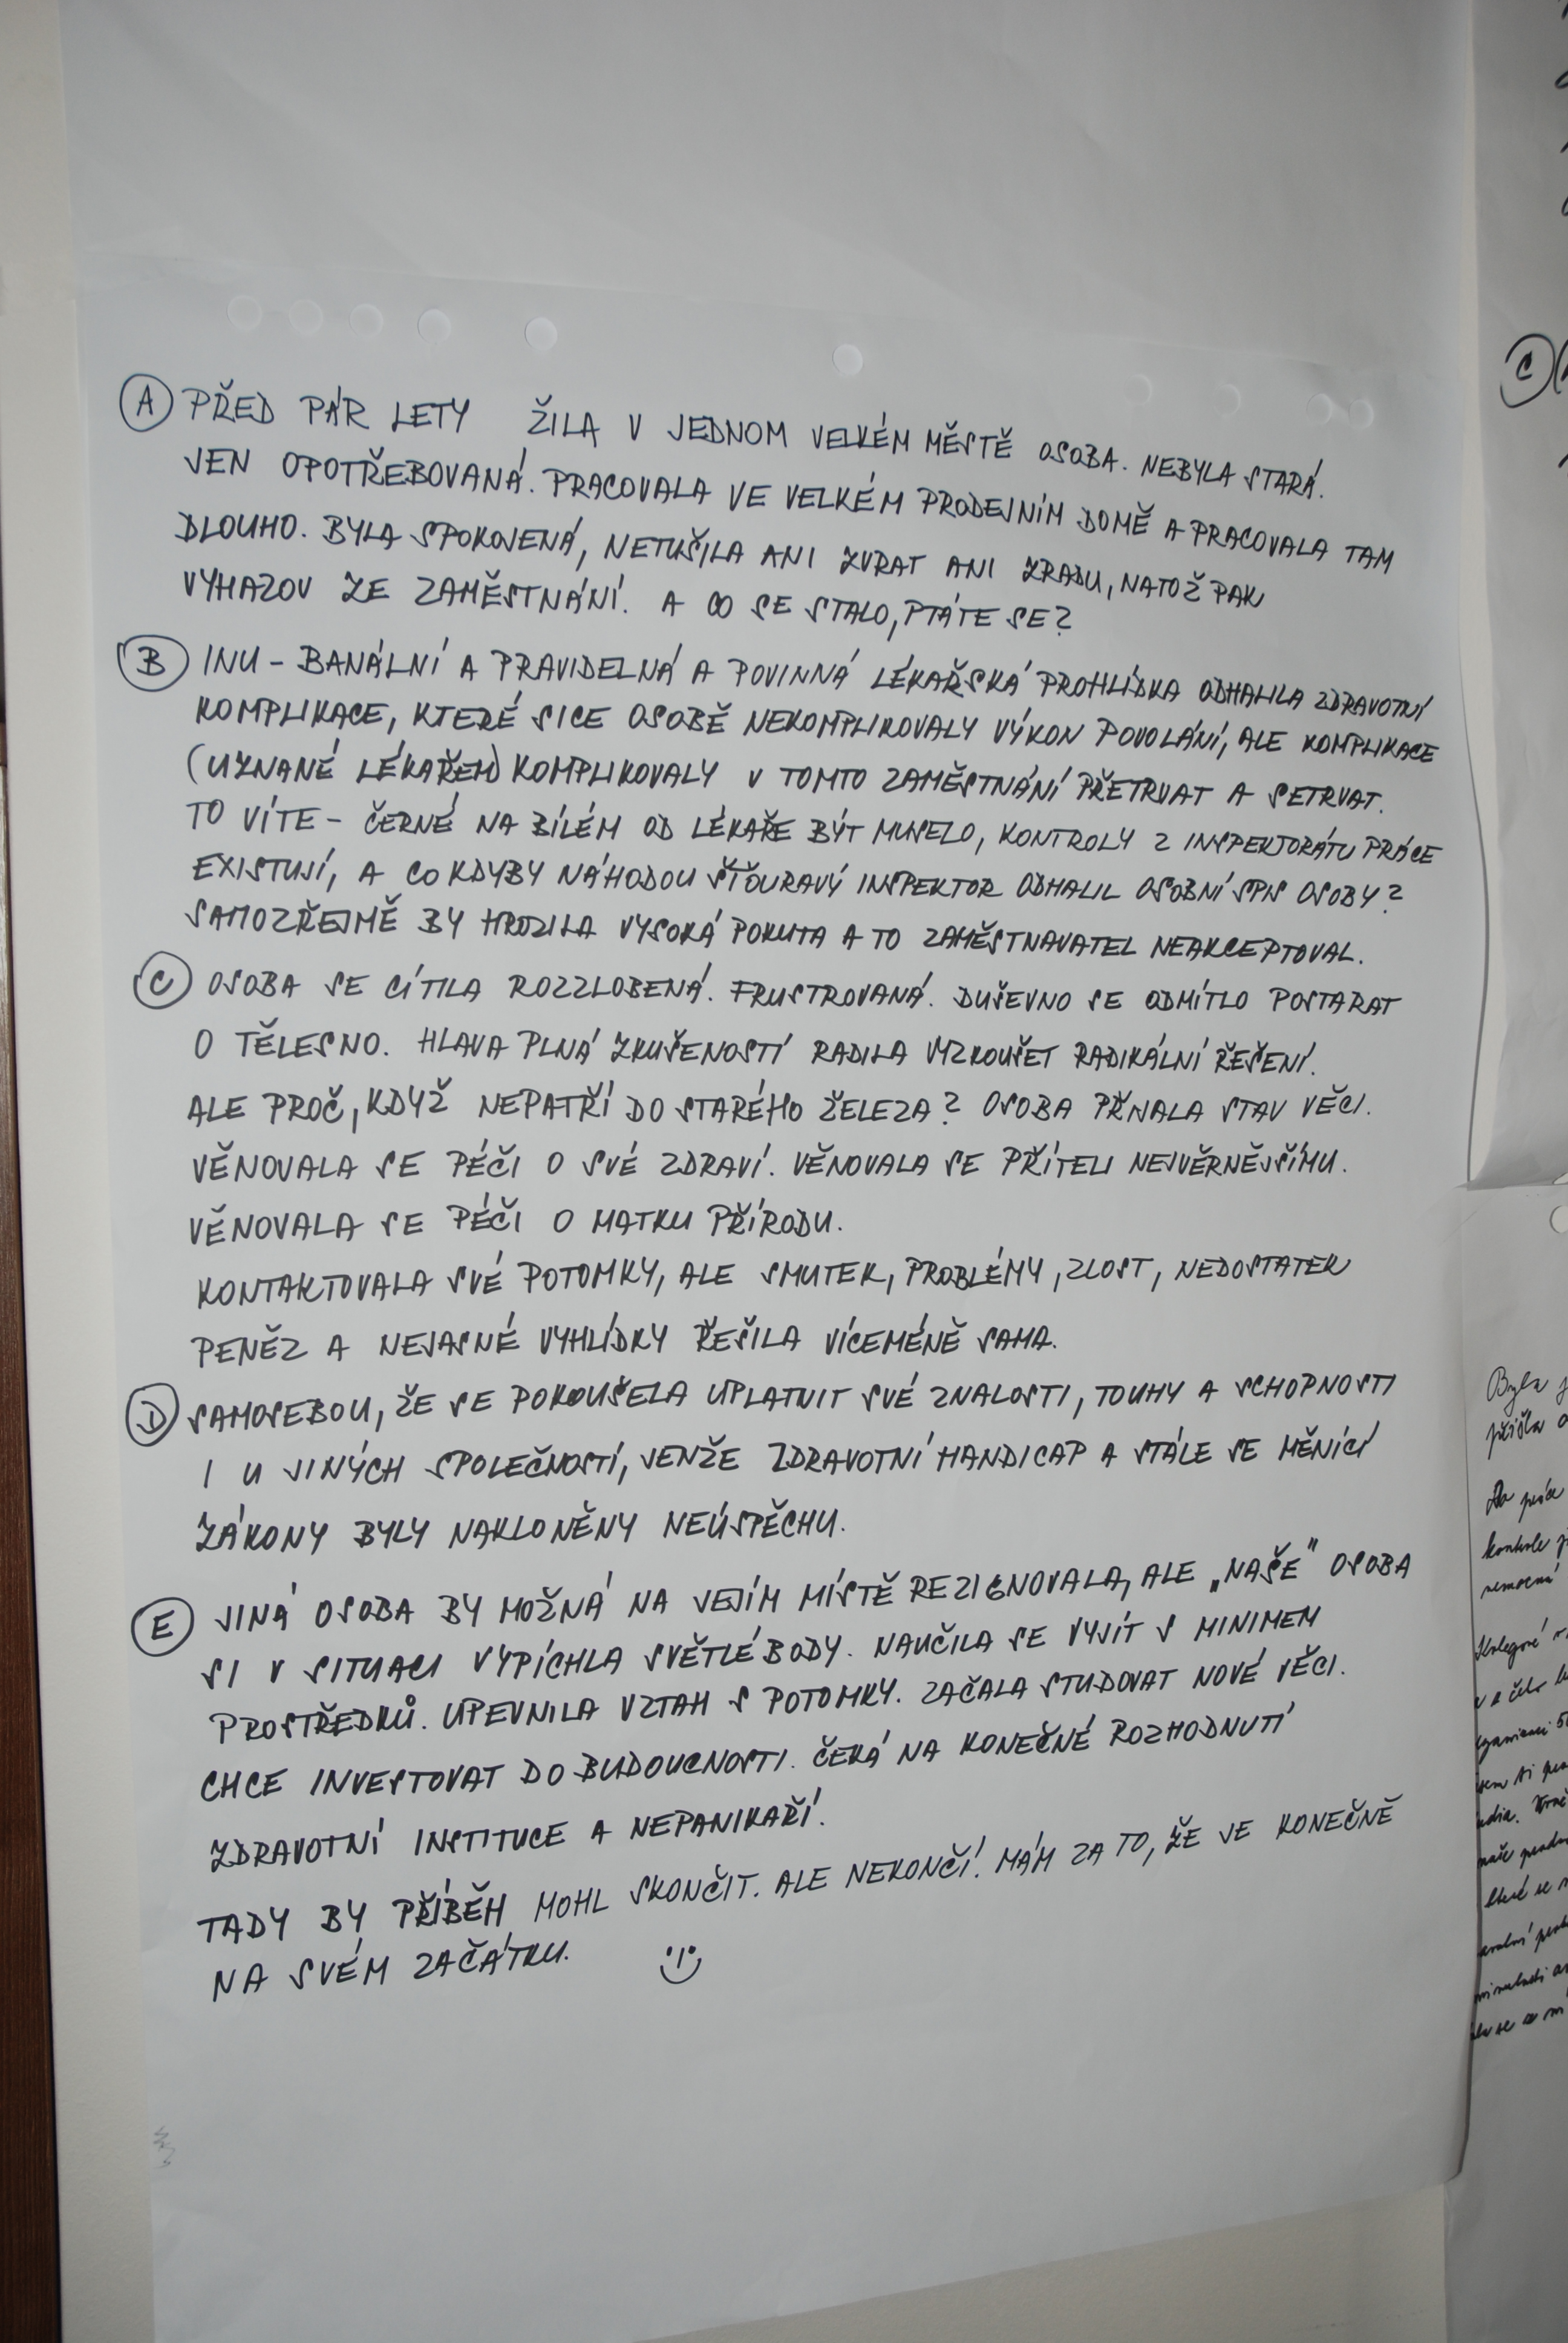 Ⓐ PŘED PÁR LETY ŽILA V JEDNOM VELKÉM MĚSTĚ OSOBA. NEBYLA STARÁ.
JEN OPOTŘEBOVANÁ. PRACOVALA VE VELKÉM PRODEJNÍM DOMĚ A PRACOVALA TAM
DLOUHO. BYLA SPOKOJENÁ, NETUŠILA ANI ZVRAT ANI ZRADU, NATOŽ PAK
VYHAZOV ZE ZAMĚSTNÁNÍ. A CO SE STALO, PTÁTE SE?
Ⓑ INU - BANÁLNÍ A PRAVIDELNÁ A POVINNÁ LÉKAŘSKÁ PROHLÍDKA ODHALILA ZDRAVOTNÍ
KOMPLIKACE, KTERÉ SICE OSOBĚ NEKOMPLIKOVALY VÝKON POVOLÁNÍ, ALE KOMPLIKACE
(UZNANÉ LÉKAŘEM) KOMPLIKOVALY V TOMTO ZAMĚSTNÁNÍ PŘETRVAT A SETRVAT.
TO VÍTE - ČERNÉ NA BÍLÉM OD LÉKAŘE BÝT MUSELO, KONTROLY Z INSPEKTORÁTU PRÁCE
EXISTUJÍ, A CO KDYBY NÁHODOU ŠŤOURAVÝ INSPEKTOR ODHALIL OSOBNÍ SPIS OSOBY?
SAMOZŘEJMĚ BY HROZILA VYSOKÁ POKUTA A TO ZAMĚSTNAVATEL NEAKCEPTOVAL.
Ⓒ OSOBA SE CÍTILA ROZZLOBENÁ. FRUSTROVANÁ. DUŠEVNO SE ODMÍTLO POSTARAT
O TĚLESNO. HLAVA PLNÁ ZKUŠENOSTÍ RADILA VYZKOUŠET RADIKÁLNÍ ŘEŠENÍ.
ALE PROČ, KDYŽ NEPATŘÍ DO STARÉHO ŽELEZA? OSOBA PŘIJALA STAV VĚCI.
VĚNOVALA SE PÉČI O SVÉ ZDRAVÍ. VĚNOVALA SE PŘÍTELI NEJVĚRNĚJŠÍMU.
VĚNOVALA SE PÉČI O MATKU PŘÍRODU.
KONTAKTOVALA SVÉ POTOMKY, ALE SMUTEK, PROBLÉMY, ZLOST, NEDOSTATEK
PENĚZ A NEJASNÉ VYHLÍDKY ŘEŠILA VÍCEMÉNĚ SAMA.
Ⓓ SAMOSEBOU, ŽE SE POKOUŠELA UPLATNIT SVÉ ZNALOSTI, TOUHY A SCHOPNOSTI
I U JINÝCH SPOLEČNOSTÍ, JENŽE ZDRAVOTNÍ HANDICAP A STÁLE SE MĚNÍCÍ
ZÁKONY BYLY NAKLONĚNY NEÚSPĚCHU.
Ⓔ JINÁ OSOBA BY MOŽNÁ NA JEJÍM MÍSTĚ REZIGNOVALA, ALE „NAŠE" OSOBA
SI V SITUACI VYPÍCHLA SVĚTLÉ BODY. NAUČILA SE VYJÍT S MINIMEM
PROSTŘEDKŮ. UPEVNILA VZTAH S POTOMKY. ZAČALA STUDOVAT NOVÉ VĚCI.
CHCE INVESTOVAT DO BUDOUCNOSTI. ČEKÁ NA KONEČNÉ ROZHODNUTÍ
ZDRAVOTNÍ INSTITUCE A NEPANIKAŘÍ.
TADY BY PŘÍBĚH MOHL SKONČIT. ALE NEKONČÍ. MÁM ZA TO, ŽE JE KONEČNĚ
NA SVÉM ZAČÁTKU.
Ⓒ
Byla
přišla
práce